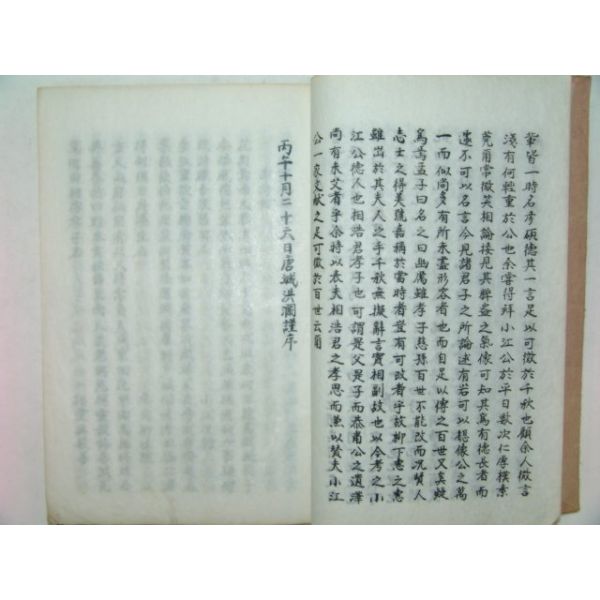 輩皆一時名彦碩德其一言足以可徵於千秋也顧余人微言
淺有何輕重於公也余嘗得拜小江公於平日數次仁厚樸素
莞爾常微笑相論接見其睟盎之氣像可知其爲有德長者而
還不可以名言今見諸君子之所論述有若可以想像公之萬
一而似尚多有所未盡形容者也而自足以傳之百世又奚疑
焉孟子曰名之曰幽厲雖孝子慈孫百世不能改而况賢人
志士之得美號嘉稱於當時者豈有可改者乎故柳下惠之惠
雖出於其夫人之手千秋無擬辭言實相副故也以今考之小
江公德人也相浩君孝子也可謂是父是子而恭肅公之遺澤
尚有未艾者乎余特以表夫相浩君之孝思而兼以贊夫小江
公一家文獻之足可徵於百世云爾
丙午十月二十六日唐城洪瀾謹序